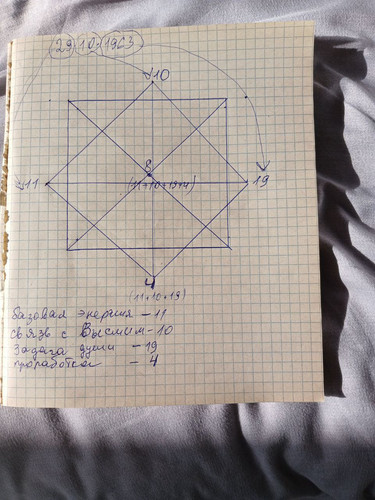 29.10.1963
10
8
11
(11+10+19+4)
19
4
(11+10+19)
базовая энергия - 11
связь с Высшим - 10
задача души - 19
проработка - 4